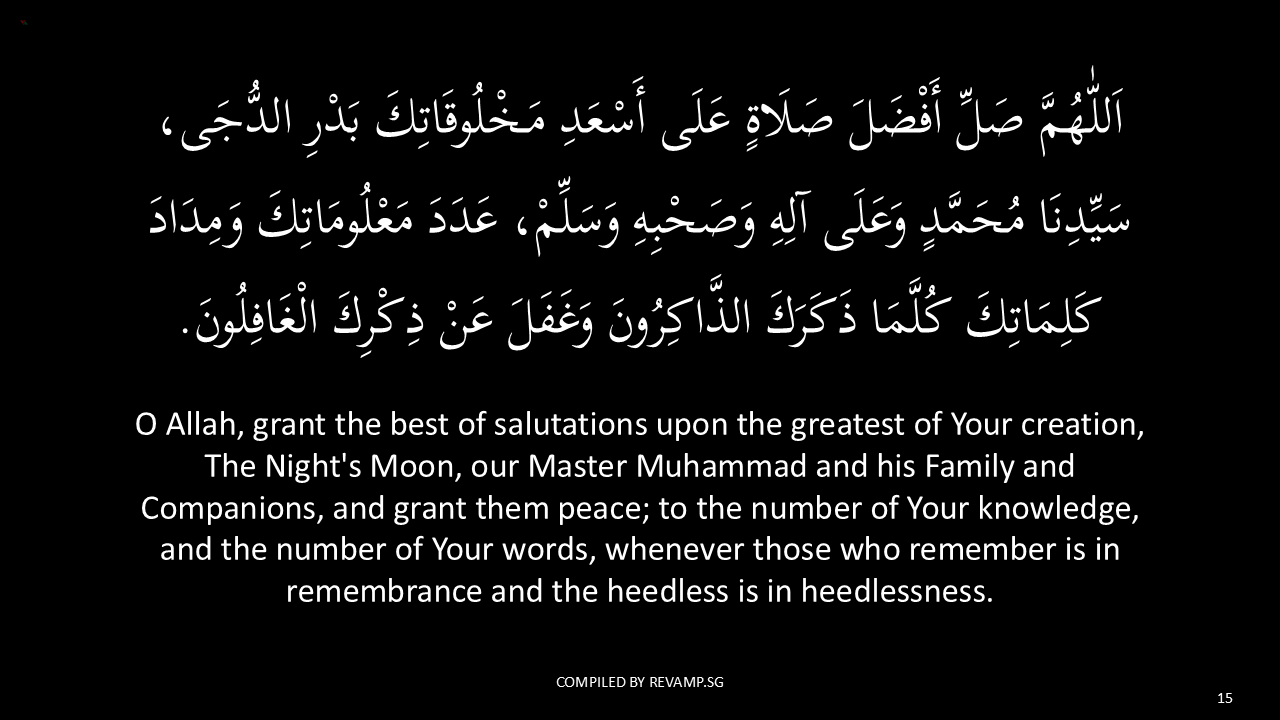 اَللّٰهُمَّ صَلِّ أَفْضَلَ صَلَاةٍ عَلَى أَسْعَدِ مَخْلُوقَاتِكَ بَدْرِ الدُّجَى،
سَيِّدِنَا مُحَمَّدٍ وَعَلَى آلِهِ وَصَحْبِهِ وَسَلِّمْ، عَدَدَ مَعْلُومَاتِكَ وَمِدَادَ
كَلِمَاتِكَ كُلَّمَا ذَكَرَكَ الذَّاكِرُونَ وَغَفَلَ عَنْ ذِكْرِكَ الْغَافِلُونَ.
O Allah, grant the best of salutations upon the greatest of Your creation,
The Night's Moon, our Master Muhammad and his Family and
Companions, and grant them peace; to the number of Your knowledge,
and the number of Your words, whenever those who remember is in
remembrance and the heedless is in heedlessness.
COMPILED BY REVAMP.SG
15